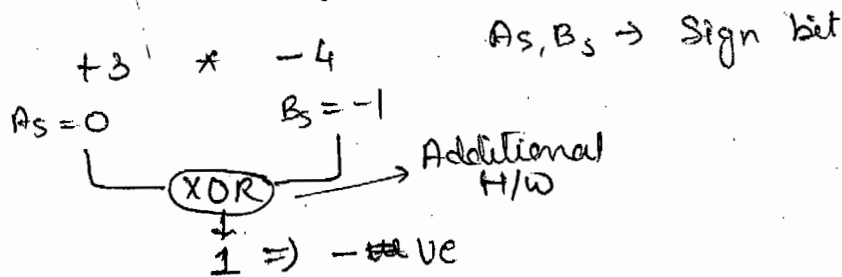 +3 * -4 As, Bs → Sign bit
As = 0 Bs = -1
XOR → Additional H/W
1 => - ve